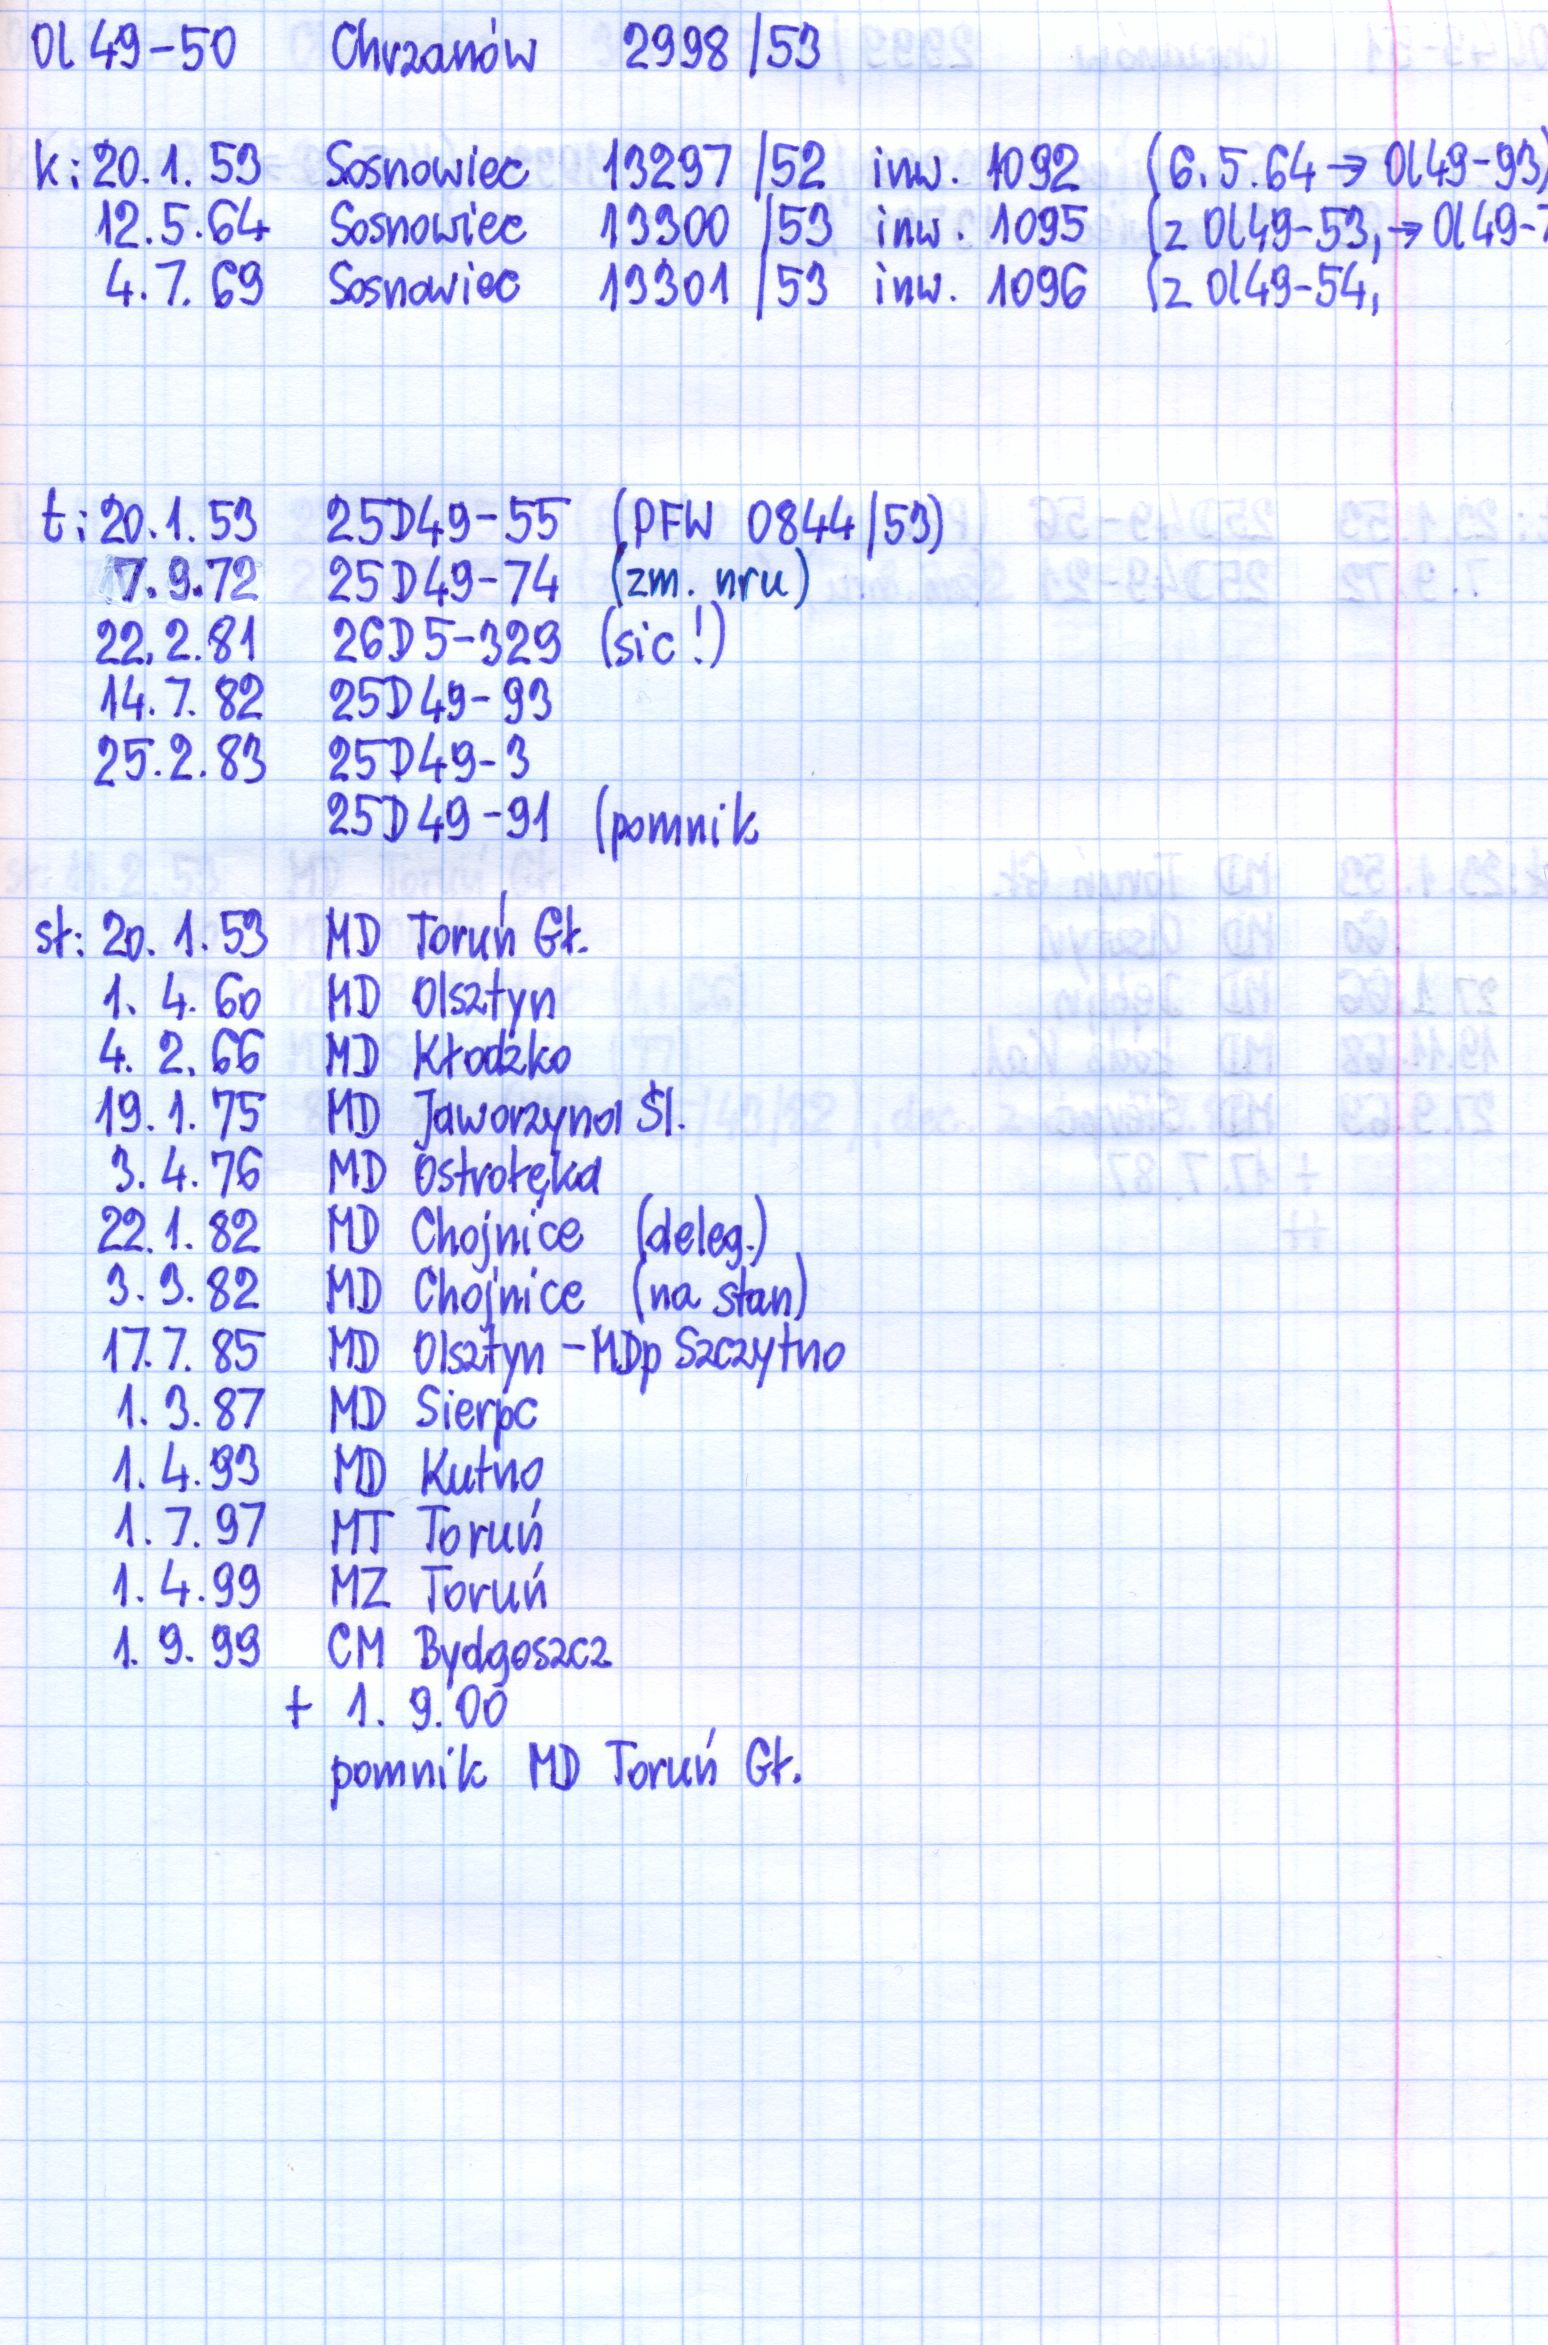 Ol49-50 Chrzanów 2998/53
k: 20.1.53 Sosnowiec 13297/52 inw. 1092 (6.5.64 → Ol49-93)
12.5.64 Sosnowiec 13300/53 inw. 1095 (z Ol49-53, → Ol49-7
4.7.69 Sosnowiec 13301/53 inw. 1096 (z Ol49-54,
t: 20.1.53 25D49-55 (PFW 0844/53)
7.9.72 25D49-74 (zm. nru)
22.2.81 26D5-329 (sic!)
14.7.82 25D49-93
25.2.83 25D49-3
25D49-91 (pomnik
st: 20.1.53 MD Toruń Gł.
1.4.60 MD Olsztyn
4.2.66 MD Kłodzko
19.1.75 MD Jaworzyna Śl.
3.4.76 MD Ostrołęka
22.1.82 MD Chojnice (deleg.)
3.3.82 MD Chojnice (na stan)
17.7.85 MD Olsztyn - MDp Szczytno
1.3.87 MD Sierpc
1.4.93 MD Kutno
1.7.97 MT Toruń
1.4.99 MZ Toruń
1.9.99 CM Bydgoszcz
+ 1.9.00
pomnik MD Toruń Gł.